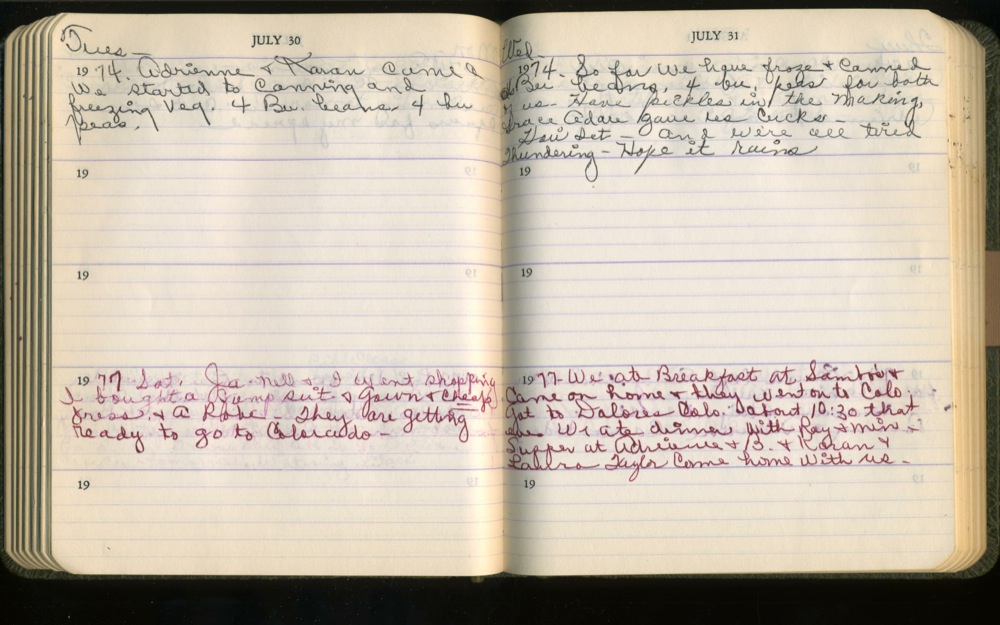 Tues —
JULY 30
1974. Adrienne & Karan came &
We started to Canning and
freezing Veg. 4 Bu. beans 4 bu
peas.
19
19
1977 Sat. Ja Nell & I went shopping
I bought a Jump suit & gown & cheap
dress & a Robe - They are getting
ready to go to Colorado -
19
Wed -
JULY 31
1974. So far We have froze & Canned
Bu beans, 4 bu. peas for both
of us - Have pickles in the making,
Grace Adair gave us Cucks -
Jaw Set - and we're all tired
Thundering - Hope it rains
19
19
1977 - We ate Breakfast at Sambos &
Came on home & they went on to Colo.
got to Dolores Colo. about 10:30 that
eve. We ate dinner with Ray & Min &
Supper at Adrienne & B. & Karan &
Laura Taylor Come home with us -
19